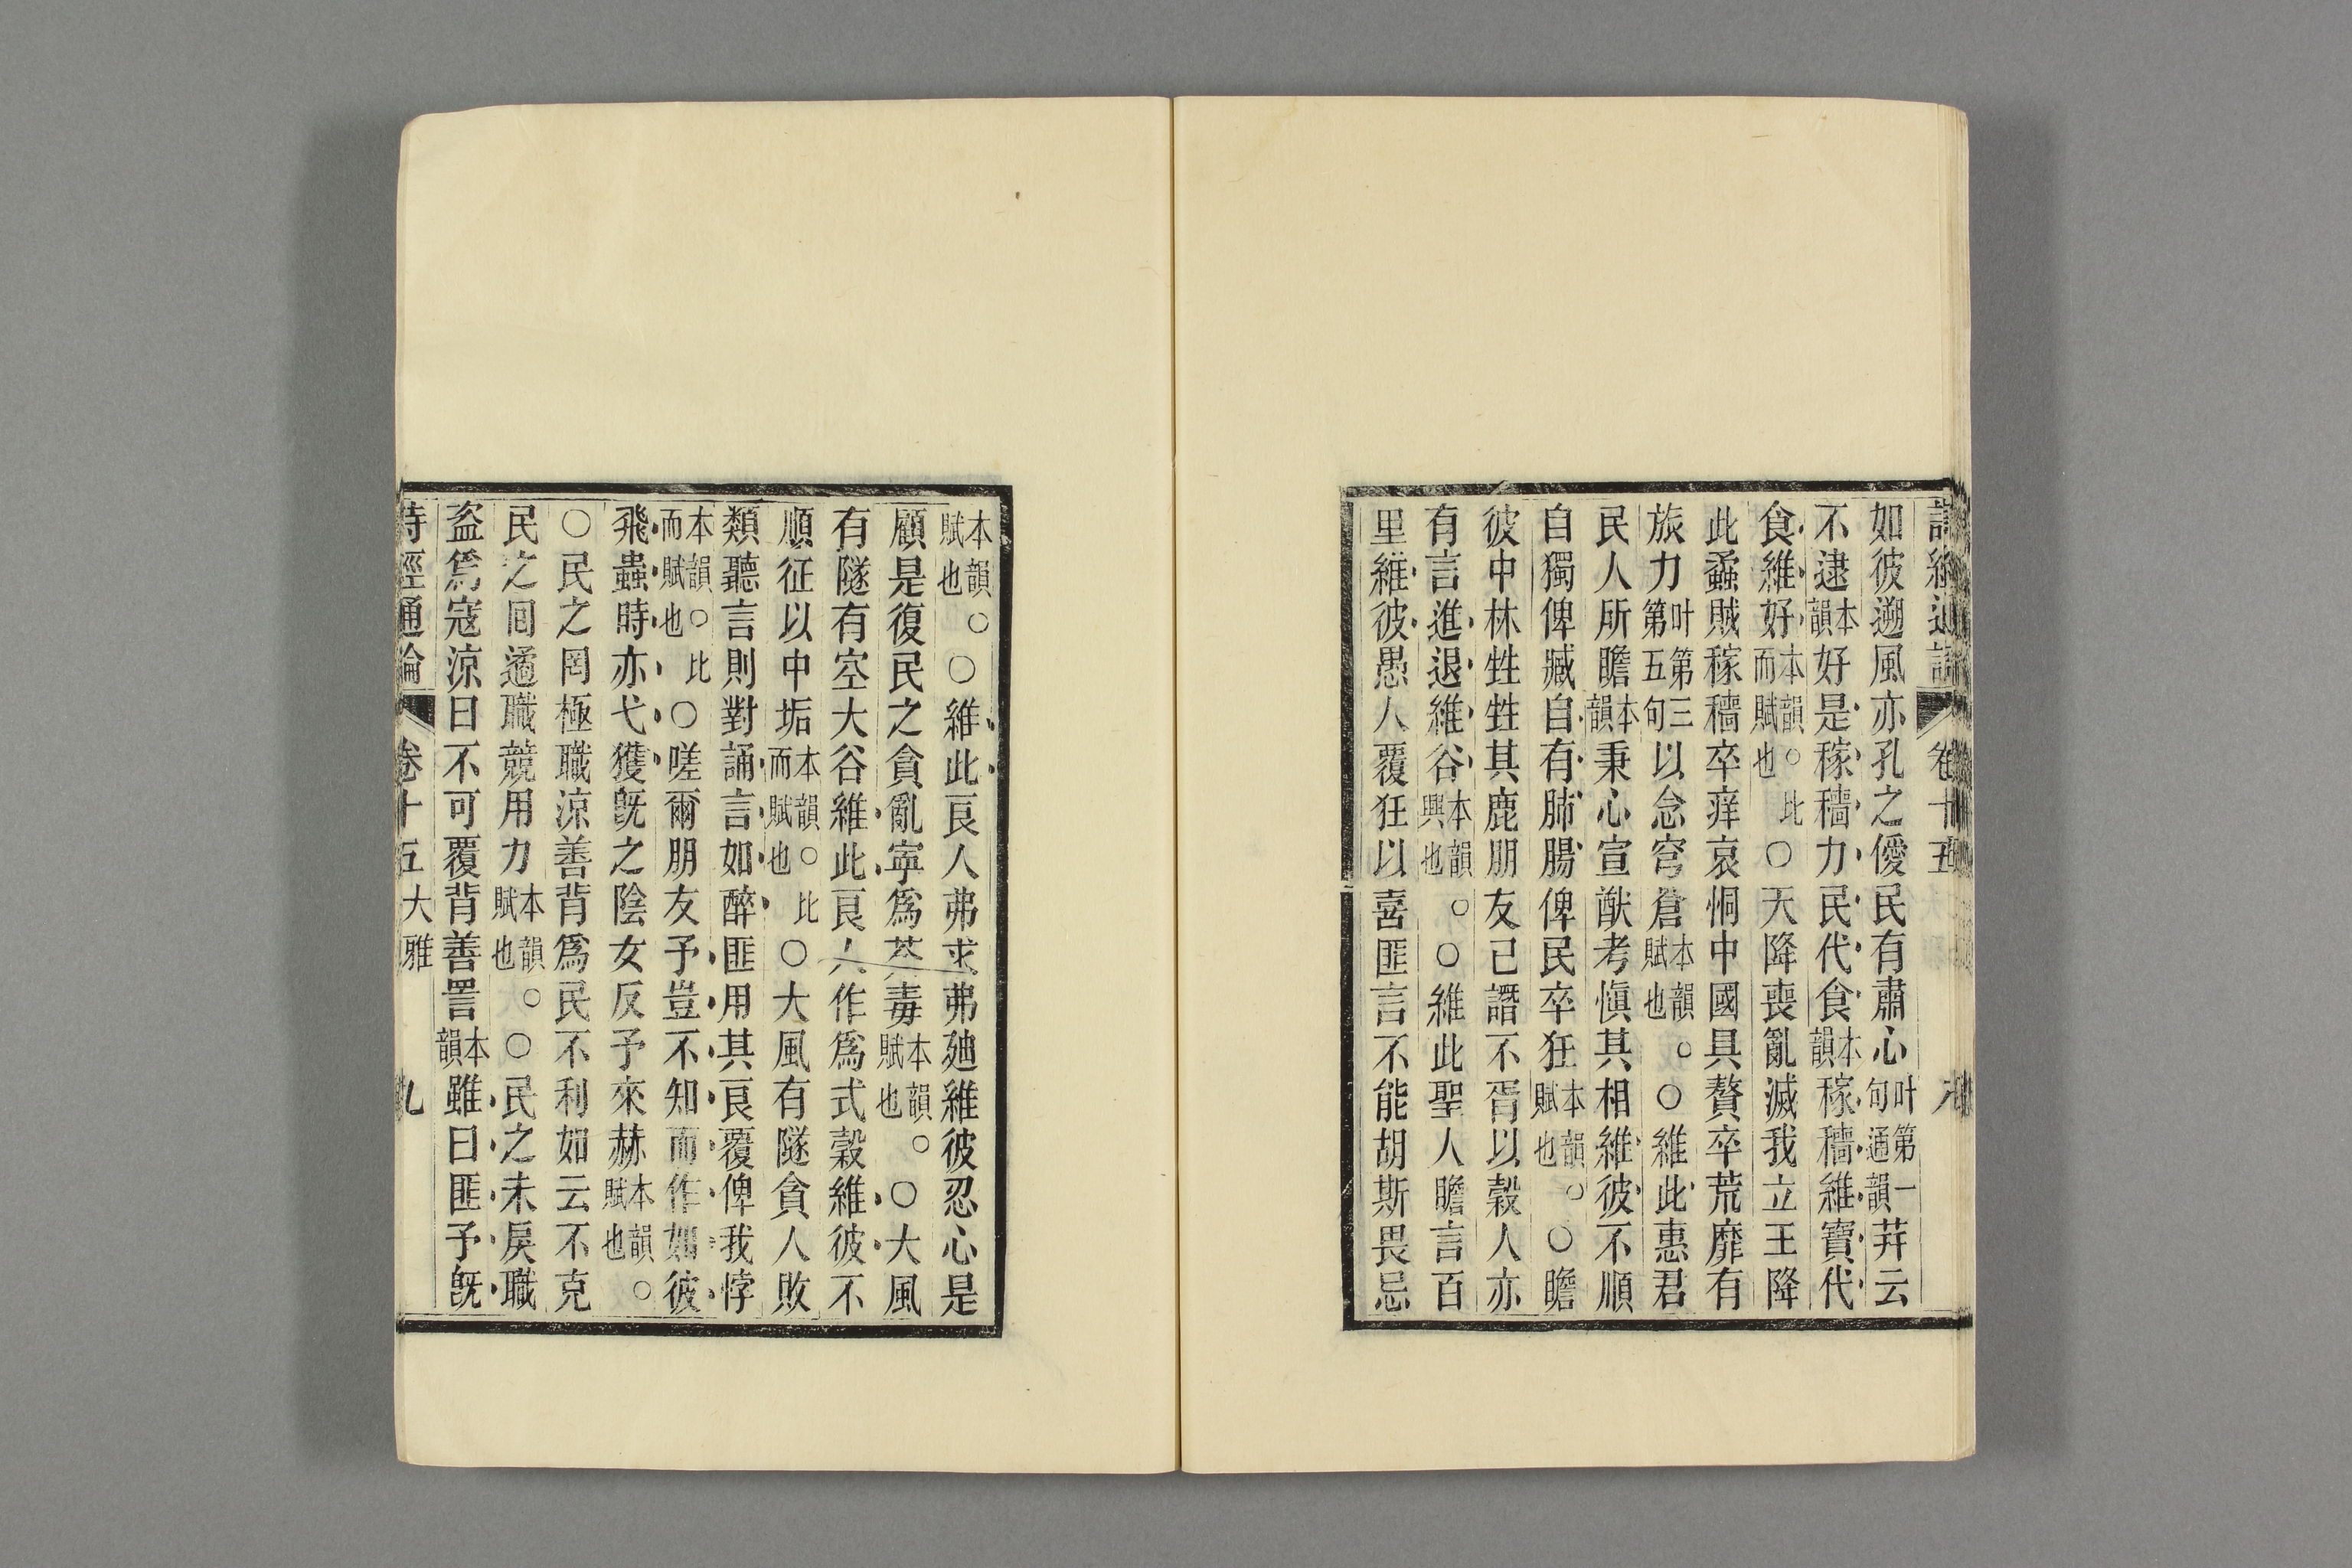 詩經通論 卷十五
如彼遡風亦孔之僾民有肅心叶第一句通韻荓云
不逮本韻好是稼穡力民代食本韻稼穡維寶代
食維好本韻。比而賦也○天降喪亂滅我立王降
此蟊賊稼穡卒痒哀恫中國具贅卒荒靡有
旅力叶第三第五句以念穹蒼本韻。賦也○維此惠君
民人所瞻本韻秉心宣猷考慎其相維彼不順
自獨俾臧自有肺腸俾民卒狂本韻。賦也○瞻
彼中林甡甡其鹿朋友已譖不胥以穀人亦
有言進退維谷本韻。興也○維此聖人瞻言百
里維彼愚人覆狂以喜匪言不能胡斯畏忌
本韻。賦也○維此良人弗求弗迪維彼忍心是
顧是復民之貪亂寧為荼毒本韻。賦也○大風
有隧有空大谷維此良人作為式穀維彼不
順征以中垢本韻。比而賦也○大風有隧貪人敗
類聽言則對誦言如醉匪用其良覆俾我悖
本韻。比而賦也○嗟爾朋友予豈不知而作如彼
飛蟲時亦弋獲既之陰女反予來赫本韻。賦也
○民之罔極職涼善背為民不利如云不克
民之回遹職競用力本韻。賦也○民之未戾職
盜為寇涼曰不可覆背善詈本韻雖曰匪予既
詩經通論 卷十五大雅 九